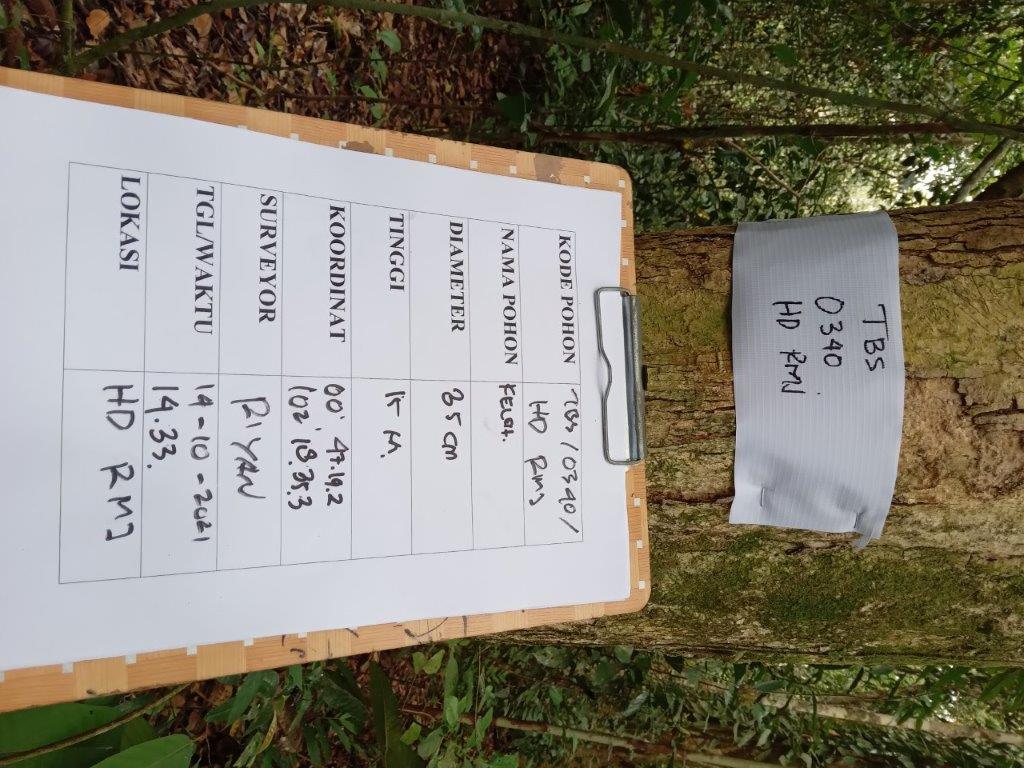 TBS
0340
HD RMJ
KODE POHON TBS/0340/
HD RMJ
NAMA POHON KELAT.
DIAMETER 35 cm
TINGGI 15 M.
KOORDINAT 00° 47.19.2
102° 18.35.3
SURVEYOR RIYAN
TGL/WAKTU 14-10-2021
14.33.
LOKASI HD RMJ